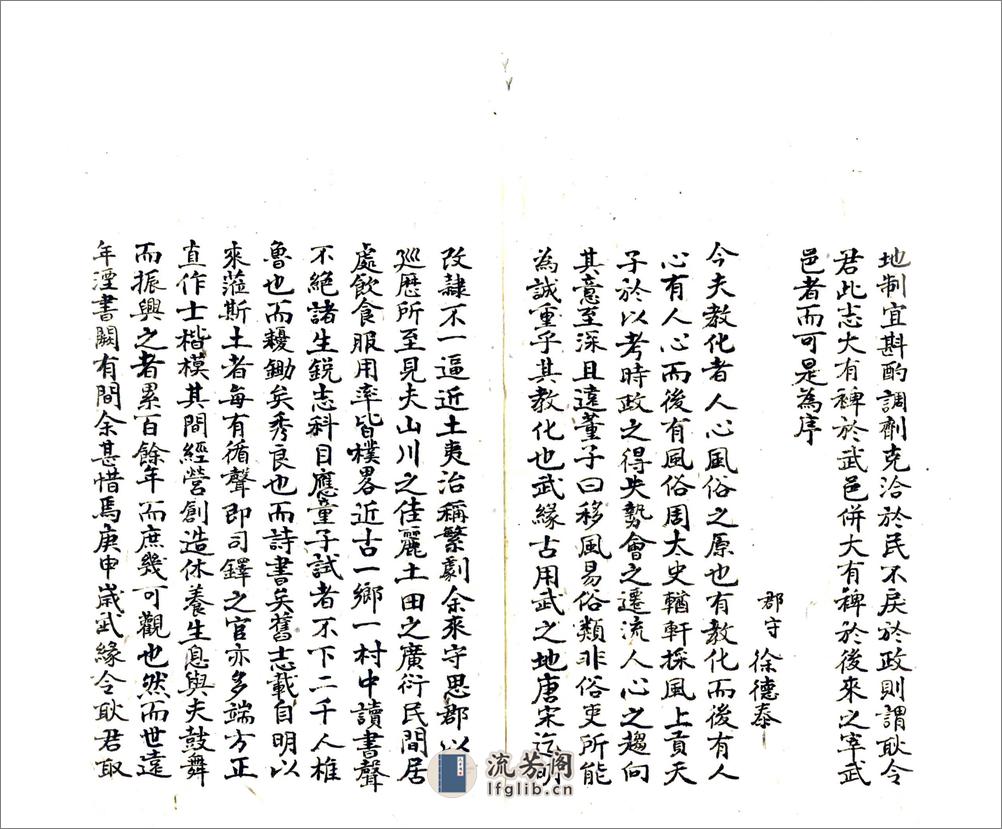 地制宜斟酌調劑克洽於民不戾於政則謂耿令
君此志大有裨於武邑併大有裨於後來之宰武
邑者而可是為序
郡守 徐德泰
今夫教化者人心風俗之原也有教化而後有人
心有人心而後有風俗周太史輶軒採風上貢天
子於以考時政之得失勢會之遷流人心之趨向
其意至深且遠董子曰移風易俗類非俗吏所能
為誠重乎其教化也武緣古用武之地唐宋迄明
改隸不一逼近土夷治稱繁劇余來守思郡以
廵歷所至見夫山川之佳麗土田之廣衍民間居
處飲食服用率皆樸畧近古一鄉一村中讀書聲
不絕諸生銳志科目應童子試者不下二千人椎
魯也而耰鋤矣秀良也而詩書矣舊志載自明以
來蒞斯土者每有循聲即司鐸之官亦多端方正
直作士楷模其間經營創造休養生息與夫鼓舞
而振興之者累百餘年而庶幾可觀也然而世遠
年湮書闕有間余甚惜焉庚申歲武緣令耿君取
流芳閣
lfglib.cn